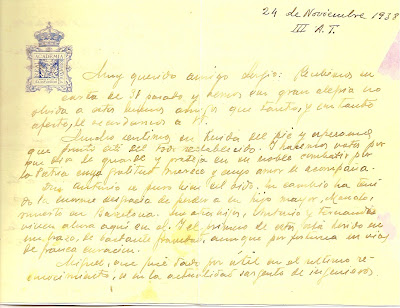 24 de Noviembre 1938
III A.T.
ACADEMIA
Muy querido amigo Sergio: Recibimos su
carta de 18 pasado, y hemos gran alegria no
olvida a estos buenos amigos que tanto, y con tanto
afecto, le recordamos a V.
Mucho sentimos su herida del pie y esperamos
que pronto esté del todo restablecido. Y hacemos votos por
que Dios le guarde y proteja en su noble combatir por
la Patria cuya gratitud merece y cuyo amor le acompaña.
Don Antonio en su
de la enorme desgracia de perder a su hijo mayor, Manolo,
muerto en Barcelona. Antonio y Fernando
viven ahora aquí en el primero de está herido en
un brazo, de bastante gravedad, aunque por fortuna en vías
de franca curación.
Miguel, que fué dado por útil en el último re-
conocimiento, es en la actualidad sargento de ingenieros